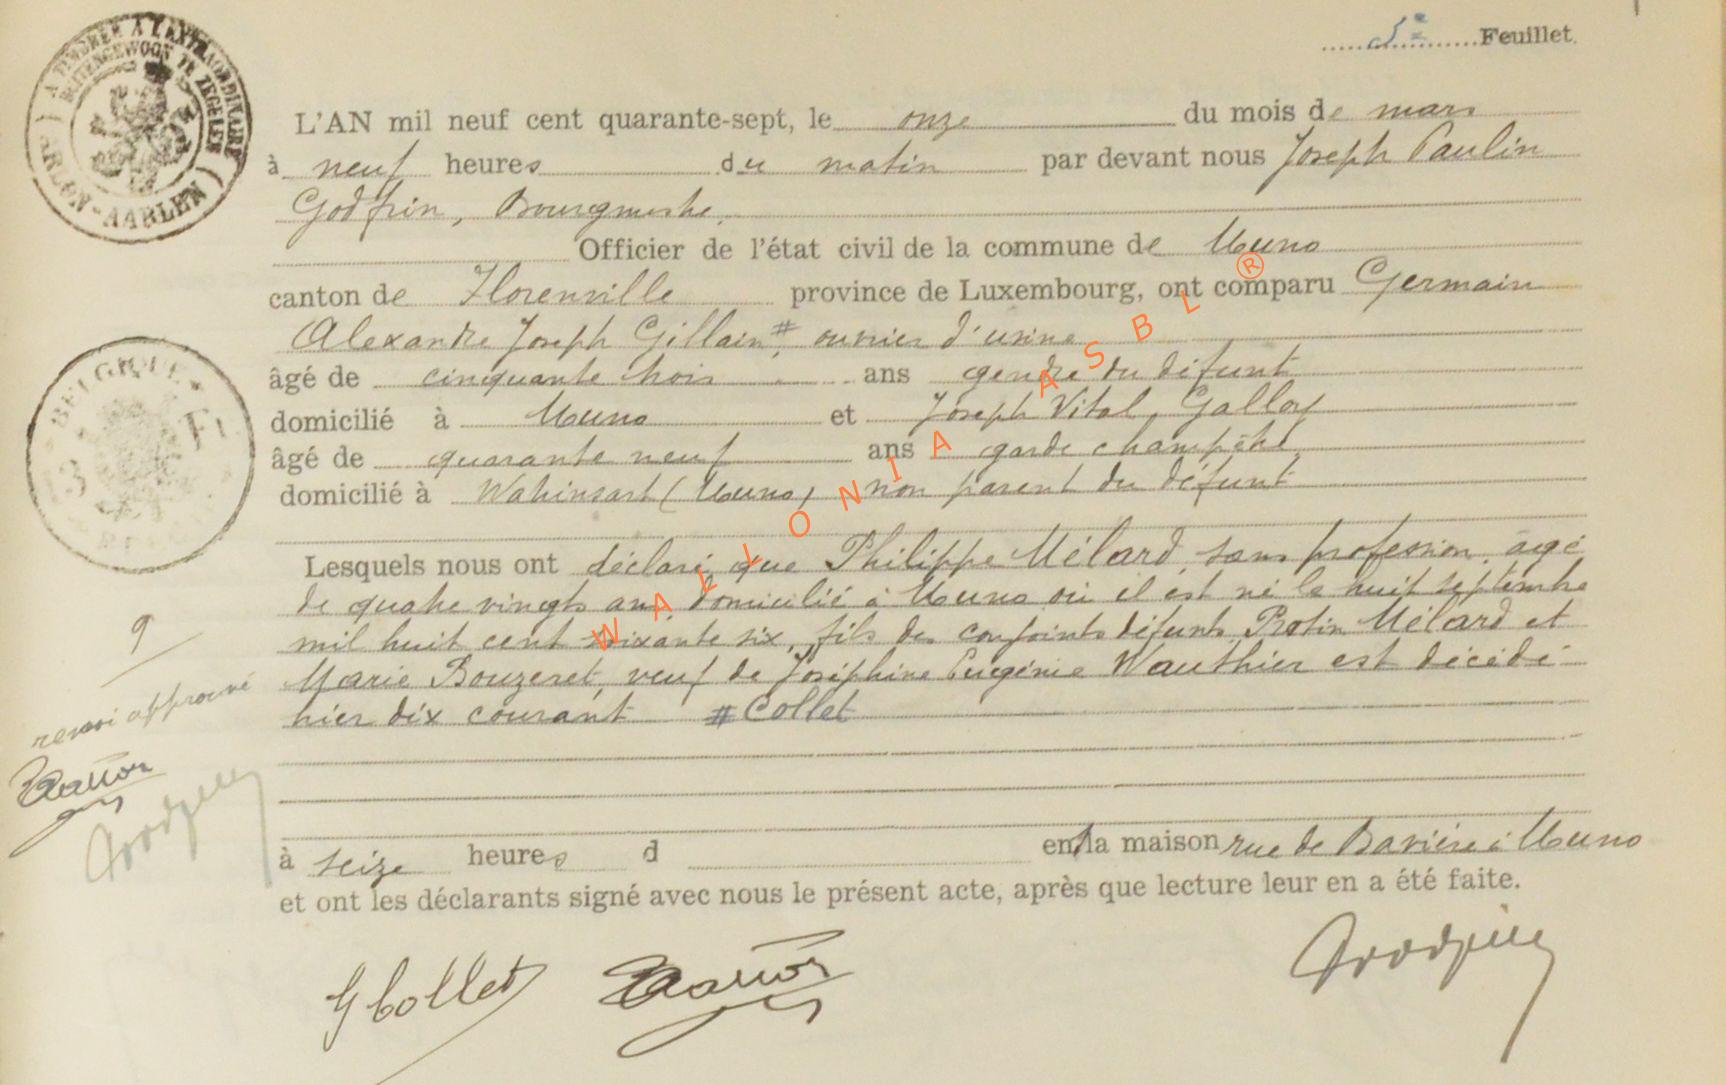 5e Feuillet.
A TIMBRER A L'EXTRAORDINAIRE
BUITENGEWOON TE ZEGELEN
ARLON-AARLEN
L'AN mil neuf cent quarante-sept, le onze du mois de mars
à neuf heures du matin par devant nous Joseph Paulin
Godfrin, Bourgmestre,
Officier de l'état civil de la commune de Muno
canton de Florenville province de Luxembourg, ont comparu Germain
Alexandre Joseph Gillain #, ouvrier d'usine
âgé de cinquante trois ans gendre du défunt
domicilié à Muno et Joseph Vital Galloy
âgé de quarante neuf ans garde champêtre,
domicilié à Watrinsart (Muno) non parent du défunt
BELGIQUE
3 Fr
Lesquels nous ont déclaré que Philippe Mélard, sans profession, âgé
de quatre vingts ans domicilié à Muno où il est né le huit septembre
mil huit cent soixante six, fils des conjoints défunts Rotin Mélard et
Marie Bouzeret, veuf de Joséphine Eugénie Wauthier est décédé
hier dix courant # Collet
9
renvoi approuvé
à seize heures d en la maison rue de Bavière à Muno
et ont les déclarants signé avec nous le présent acte, après que lecture leur en a été faite.
G Collet
WALLONIA ASBL ®